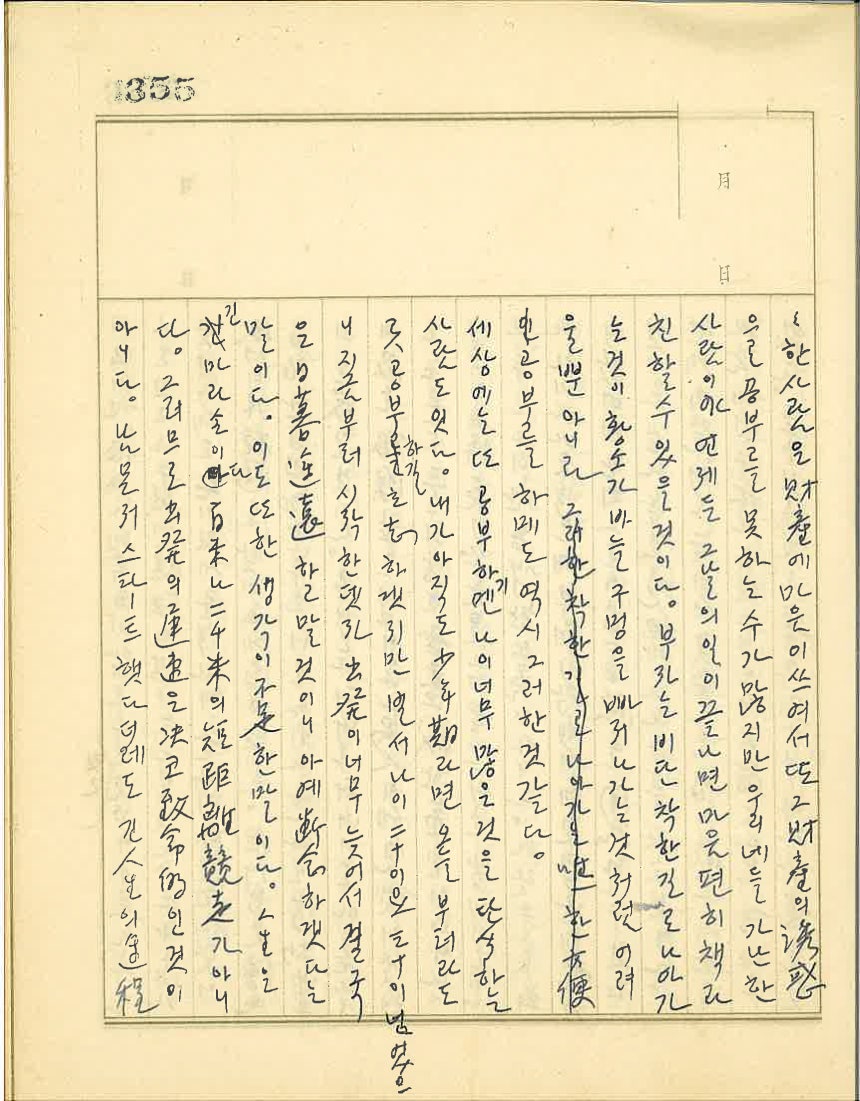 1355
月
日
한 사람은 財産에 마음이 쓰여서 또 그 財産의 誘惑
으로 공부를 못하는 수가 많지만 우리네들 가난한
사람이야 언제든 그날의 일이 끝나면 마음 편히 책과
친할 수 있을 것이다. 부자는 비단 착한 길로 나아가
는 것이 황소가 바늘구멍을 빠져나가는 것처럼 어려
울 뿐 아니라 그러한 착한
공부를 하메도 역시 그러한 것 같다.
세상에는 또 공부하기엔 나이 너무 많은 것을 탄식하는
사람도 있다. 내가 아직도 少年期라면 오늘부터라도
곳 공부하길 하겠지만 벌서 나이 二十이요 三十이 넘었으
니 지금부터 시작한댓자 出発이 너무 늦어서 결국
은 日暮途遠하고 말 것이니 아예 断念하겠다는
말이다. 이도 또한 생각이 不足한 말이다. 人生은
긴 마라손이다 百米나 二千米의 短距離競走가 아니
다. 그러므로 出発의 遅速은 决코 致命的인 것이
아니다. 남몬저 스타ー트 했다 더레도 긴 人生의 途程